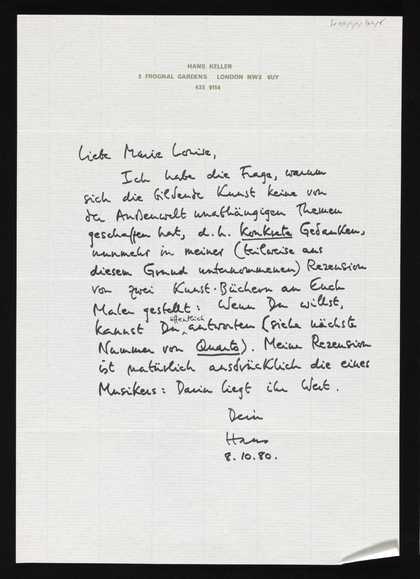 HANS KELLER
3 FROGNAL GARDENS LONDON NW3 6UY
435 9114
Liebe Marie Louise,
Ich habe die Frage, warum
sich die bildende Kunst keine von
der Außenwelt unabhängigen Themen
geschaffen hat, d.h. konkrete Gedanken,
nunmehr in meiner (teilweise aus
diesem Grund unternommenen) Rezension
von zwei Kunst-Büchern an Euch
Maler gestellt: Wenn Du willst,
kannst Du öffentlich antworten (siehe nächste
Nummer von Quarto). Meine Rezension
ist natürlich ausdrücklich die eines
Musikers: Darin liegt ihr Wert.
Dein
Hans
8.10.80.